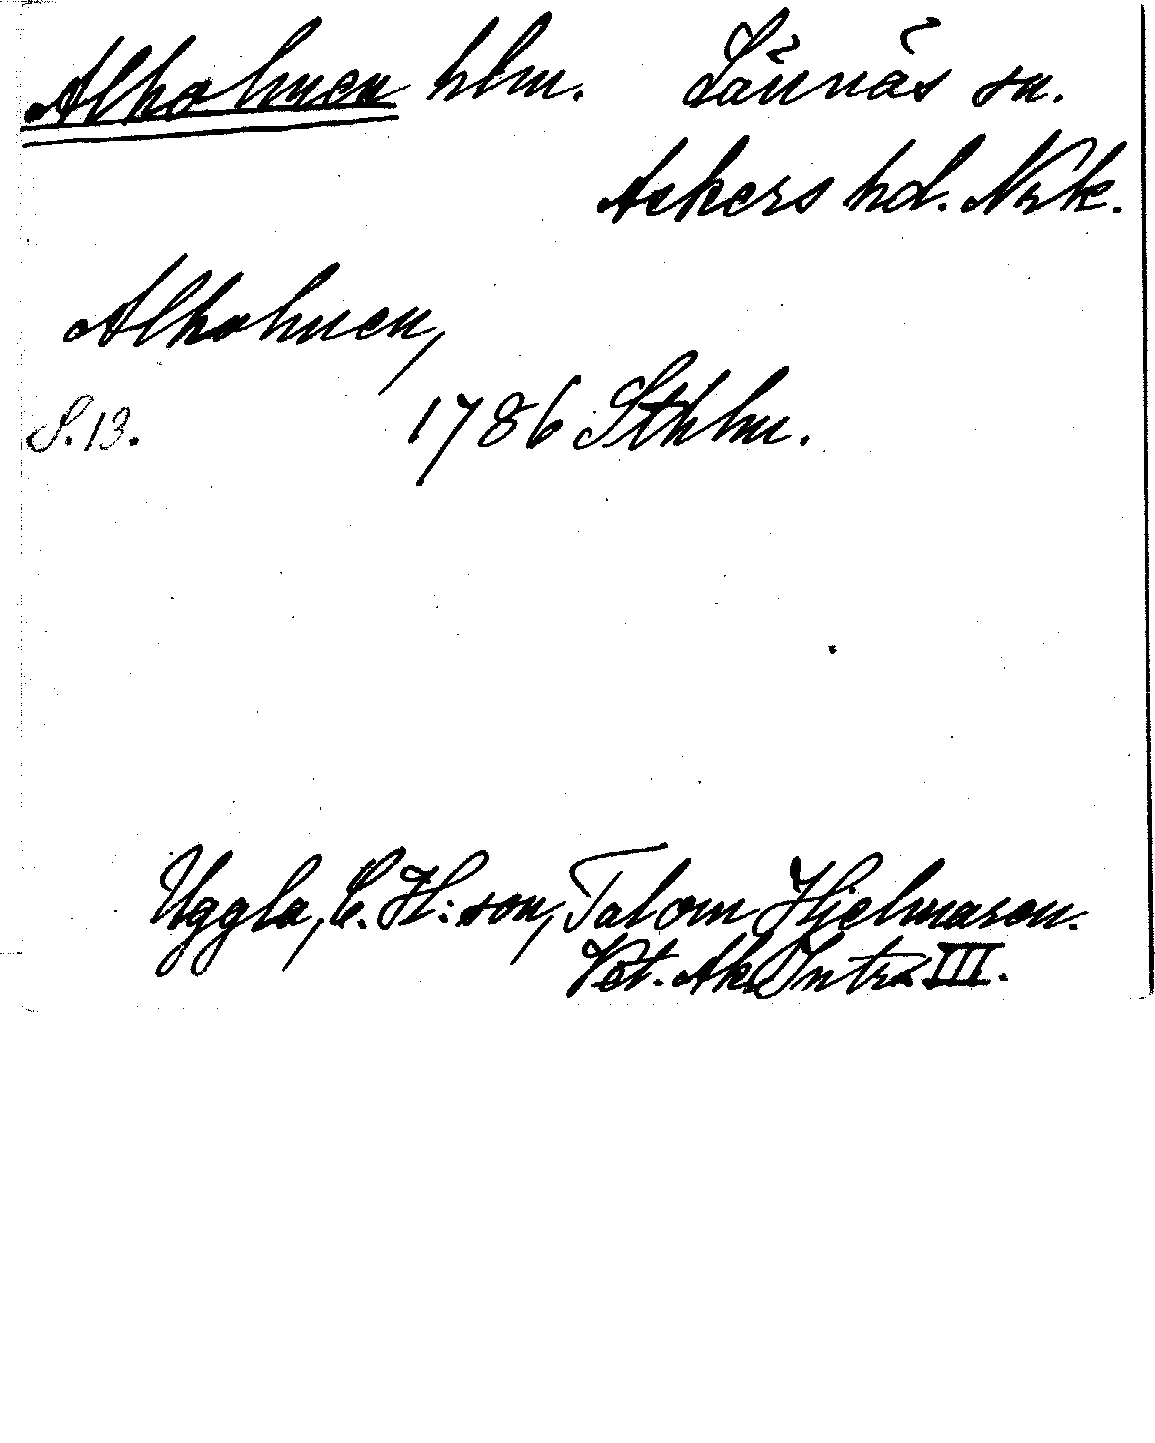 Alholmen hlm. Lännäs sn.
Askers hd. Nrk.
Alholmen,
S. 13. 1786 Sthlm.
Uggla, C. H:son, Tal om Hjelmaren.
Vet. Ak. Intr. III.